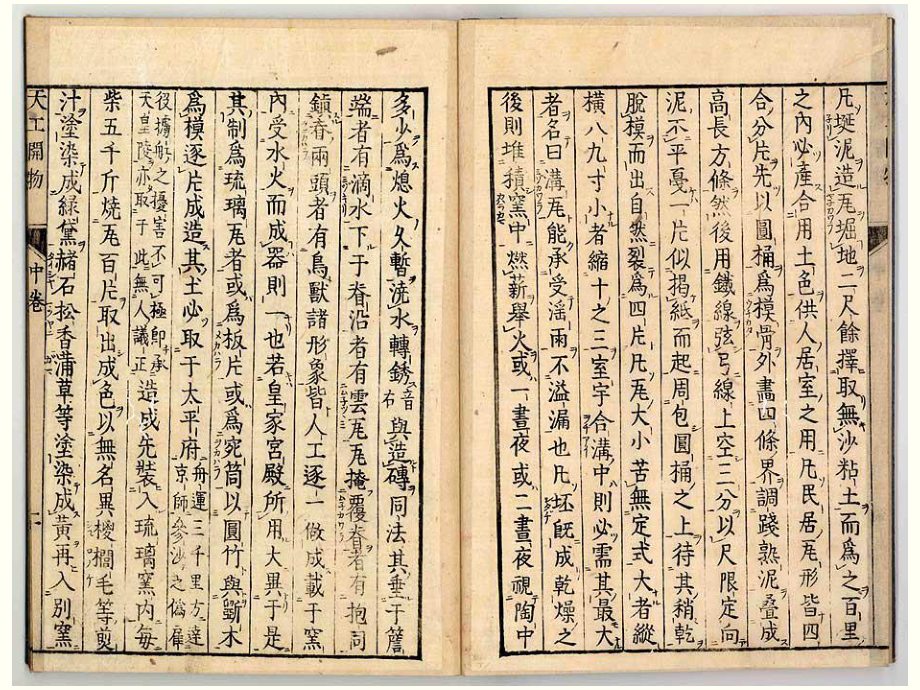 凡埏泥造瓦掘地二尺餘擇取無沙粘土而爲之百里
之內必產合用土色供人居室之用凡民居瓦形皆四
合分片先以圓桶爲模骨外畫四條界調踐熟泥疊成
高長方條然後用鐵線弦弓線上空三分以尺限定向
泥不平戞一片似揭紙而起周包圓桶之上待其稍乾
脫模而出自然裂爲四片凡瓦大小苦無定式大者縱
橫八九寸小者縮十之三室宇合溝中則必需其最大
者名曰溝瓦能承受淫雨不溢漏也凡坯既成乾燥之
後則堆積窯中燃薪舉火或一晝夜或二晝夜視陶中
多少爲熄火久暫澆水轉銹音右與造磚同法其垂于簷
端者有滴水下于脊沿者有雲瓦瓦掩覆脊者有抱同
鎮脊兩頭者有鳥獸諸形象皆人工逐一做成載于窯
內受水火而成器則一也若皇家宮殿所用大異于是
其制爲琉璃瓦者或爲板片或爲宛筒以圓竹與斵木
爲模逐片成造其土必取于太平府舟運三千里方達京師參沙之僞雇
役擄舡之擾害不可極即承天皇陵亦取于此無人議正造成先裝入琉璃窯內每
柴五千斤燒瓦百片取出成色以無名異椶櫚毛等煎
汁塗染成綠黛赭石松香蒲草等塗染成黃再入別窯
天工開物 中卷